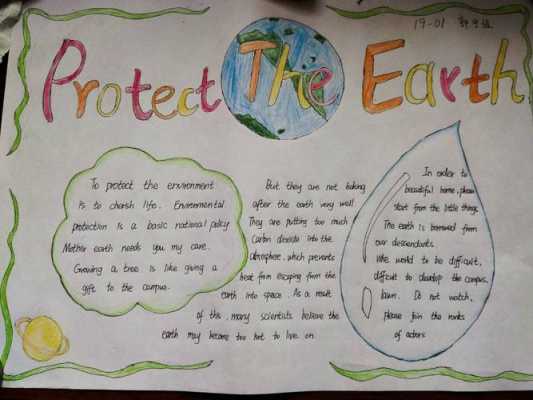 19-01
Protect The Earth
To protect the environment
is to cherish life. Environmental
protection is a basic national policy
Mother earth needs you my care.
Growing a tree is like giving a
gift to the campus.
But they are not taking
after the earth very well
They are putting too much
Carbon dioxide into the
atmosphere, which prevents
heat from escaping from the
earth into space. As a result
of this, many scientists believe the
earth may become too hot to live on
In order to
beautiful home, please
start from the little things.
The earth is borrowed from
our descendants.
We would to be difficult,
difficult to develop the campus
lawn. Do not watch,
please join the ranks
of actors